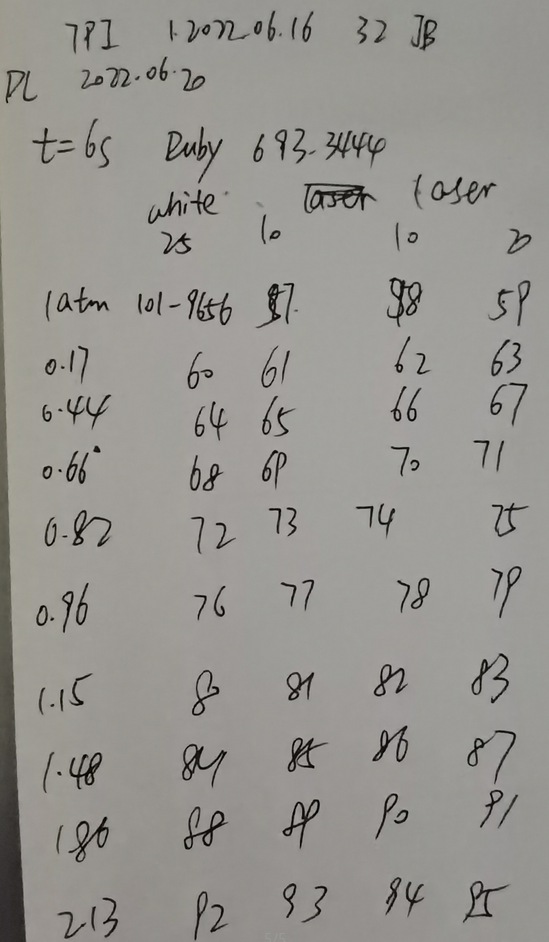 TPI 1.2022.06.16 32 JB
DL 2022.06.20
t=6s Ruby 693.3444
white laser laser
25 10 10 20
1atm 101-9656 57 58 59
0.17 60 61 62 63
0.44 64 65 66 67
0.66 68 69 70 71
0.82 72 73 74 75
0.96 76 77 78 79
1.15 80 81 82 83
1.48 84 85 86 87
1.86 88 89 90 91
2.13 92 93 94 95